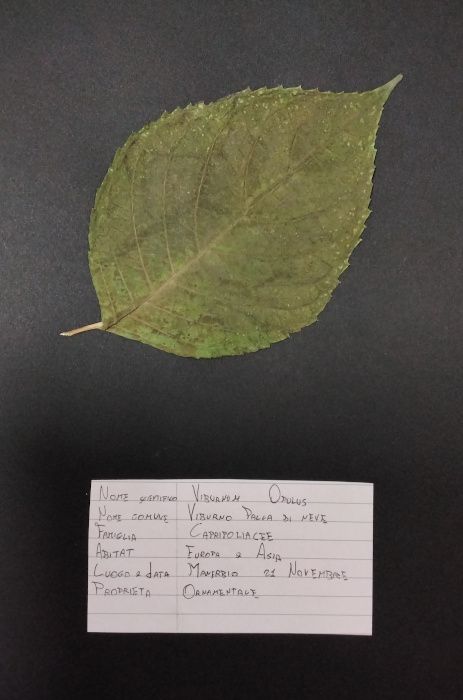 Nome scientifico Viburnum Opulus
Nome comune Viburno Palla di neve
Famiglia Caprifoliacee
Abitat Europa e Asia
Luogo e data Manerbio 21 Novembre
Proprietà Ornamentale